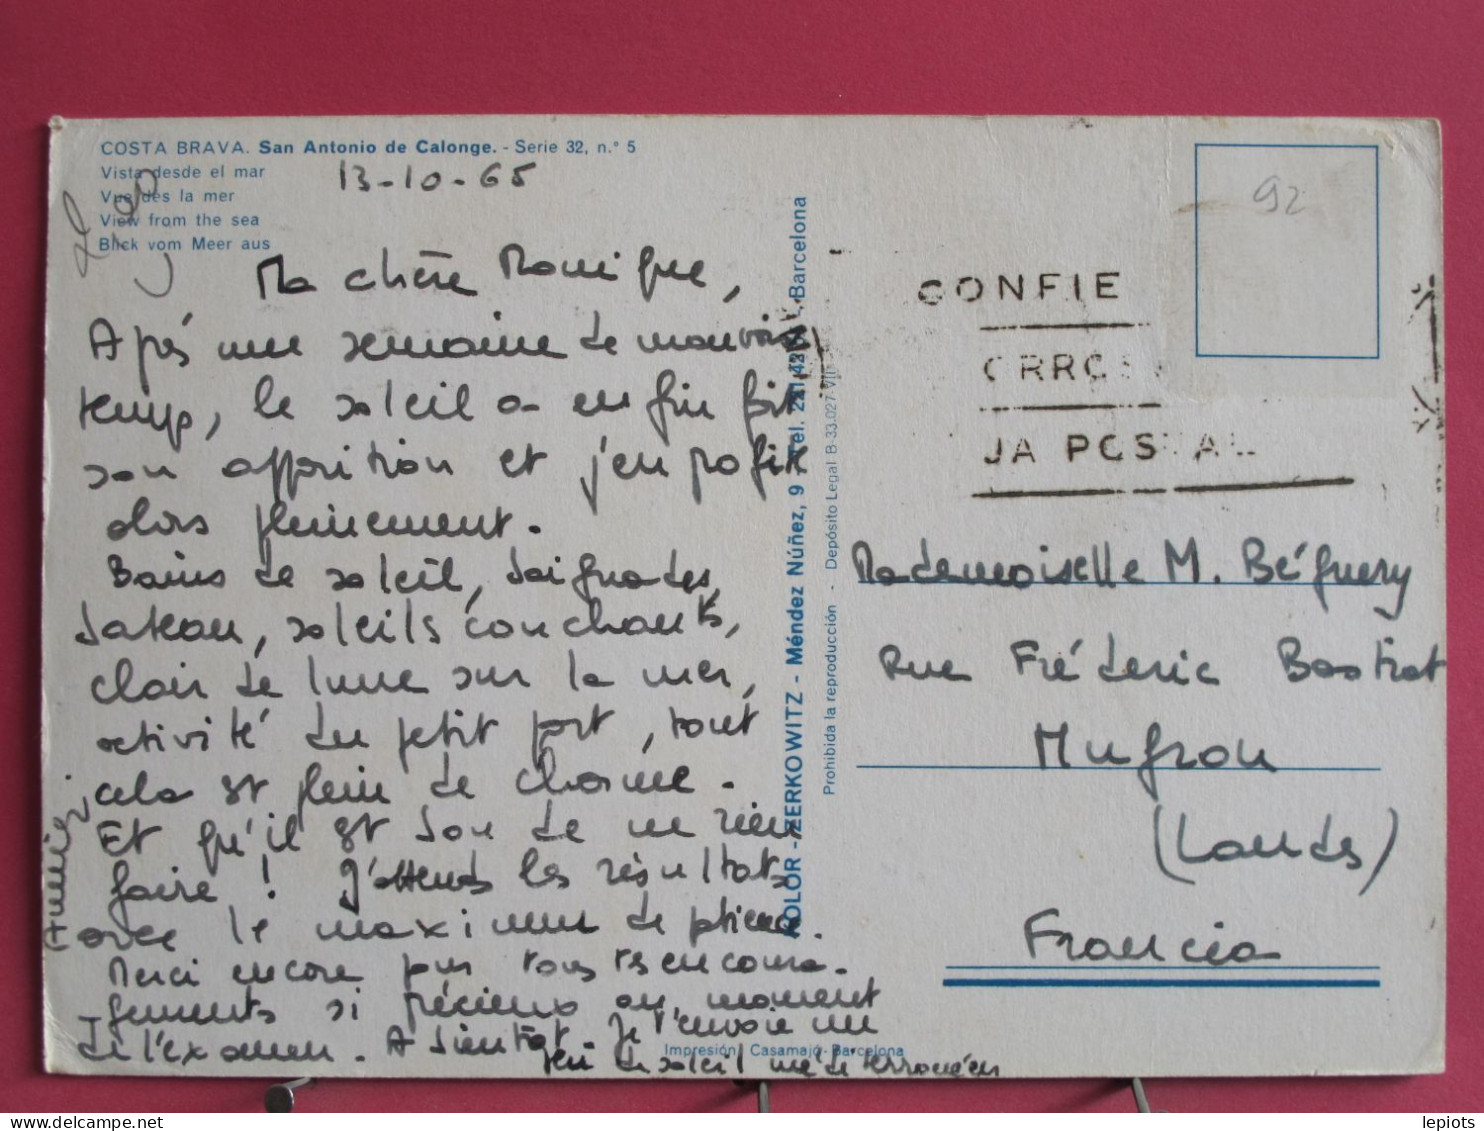 COSTA BRAVA. San Antonio de Calonge. - Serie 32, n.° 5
Vista desde el mar
Vue dès la mer
View from the sea
Blick vom Meer aus
13-10-65
Ma chère Monique,
Après une semaine de mauvais
temps, le soleil a enfin fait
son apparition et j'en profite
alors pleinement.
Bains de soleil, baignades,
bateau, soleils couchants,
clair de lune sur la mer,
activité du petit port, tout
cela est plein de charme.
Et qu'il est bon de ne rien
faire ! J'attends les résultats
avec le maximum de
Merci encore pour tous tes encoura-
gements si précieux au moment
de l'examen. A bientôt. Je t'envoie un
peu de soleil méditerranéen
KOLOR - ZERKOWITZ - Méndez Núñez, 9 Tel. Barcelona
Prohibida la reproducción - Depósito Legal B-33.027-VII
Impresión: Casamajó-Barcelona
92
CONFIE
ORROS
JA POSTAL
Mademoiselle M. Béguery
Rue Fréderic Bastiat
Mugron
(Landes)
Francia
lepiots